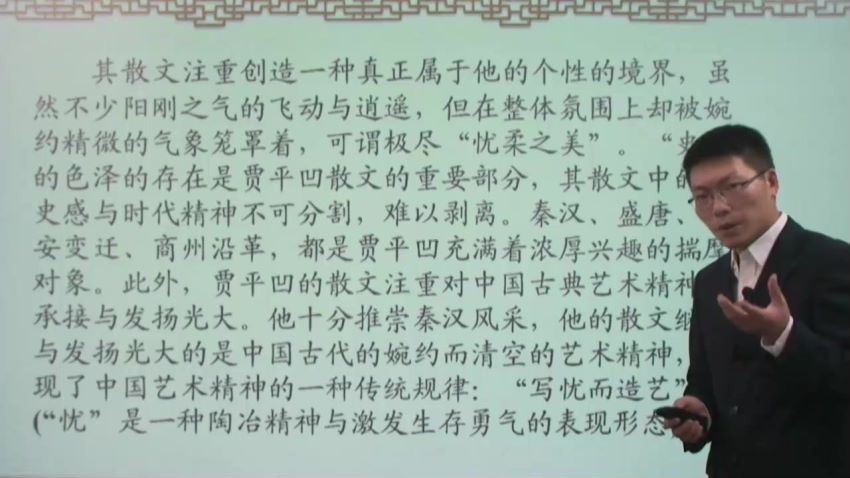 其散文注重创造一种真正属于他的个性的境界，虽
然不少阳刚之气的飞动与逍遥，但在整体氛围上却被婉
约精微的气象笼罩着，可谓极尽“忧柔之美”。“史
的色泽的存在是贾平凹散文的重要部分，其散文中的
史感与时代精神不可分割，难以剥离。秦汉、盛唐、
安变迁、商州沿革，都是贾平凹充满着浓厚兴趣的揣摩
对象。此外，贾平凹的散文注重对中国古典艺术精神
承接与发扬光大。他十分推崇秦汉风采，他的散文继
与发扬光大的是中国古代的婉约而清空的艺术精神，
现了中国艺术精神的一种传统规律：“写忧而造艺”
(“忧”是一种陶冶精神与激发生存勇气的表现形态